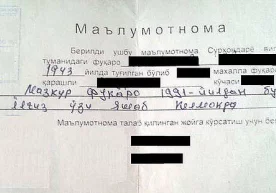 Маълумотнома
Берилди ушбу маълумотнома, Сурхондарё ви
туманидаги фуқаро
1943 йилда туғилган бўлиб маҳалла фуқаро
қарашли
Мазкур фуқаро 1991-йилдан бу
ёлғиз ўзи яшаб келмоқда
Маълумотнома талаб қилинган жойга кўрсатиш учун бе